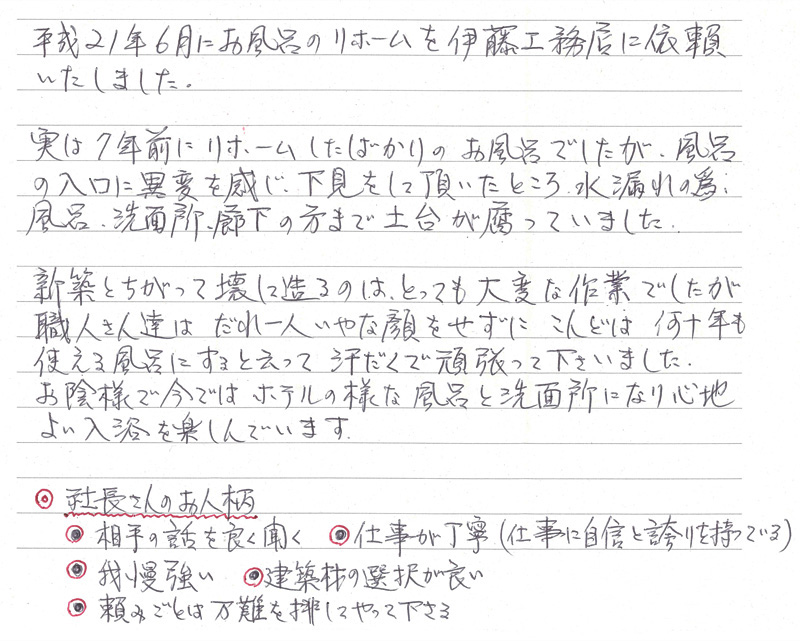 平成21年6月にお風呂のリホームを伊藤工務店に依頼
いたしました.
実は7年前にリホームしたばかりのお風呂でしたが、風呂
の入口に異変を感じ、下見をして頂いたところ、水漏れの為、
風呂、洗面所、廊下の方まで土台が腐っていました.
新築とちがって壊して造るのは、とっても大変な作業でしたが
職人さん達は だれ一人いやな顔をせずに こんどは 何十年も
使える風呂にすると云って 汗だくで頑張って下さいました.
お陰様で今では ホテルの様な 風呂と洗面所になり心地
よい入浴を楽しんでいます.
◎ 社長さんのお人柄
◎ 相手の話を良く聞く ◎ 仕事が丁寧(仕事に自信と誇りを持っている)
◎ 我慢強い ◎ 建築材の選択が良い
◎ 頼みごとは万難を排してやって下さる